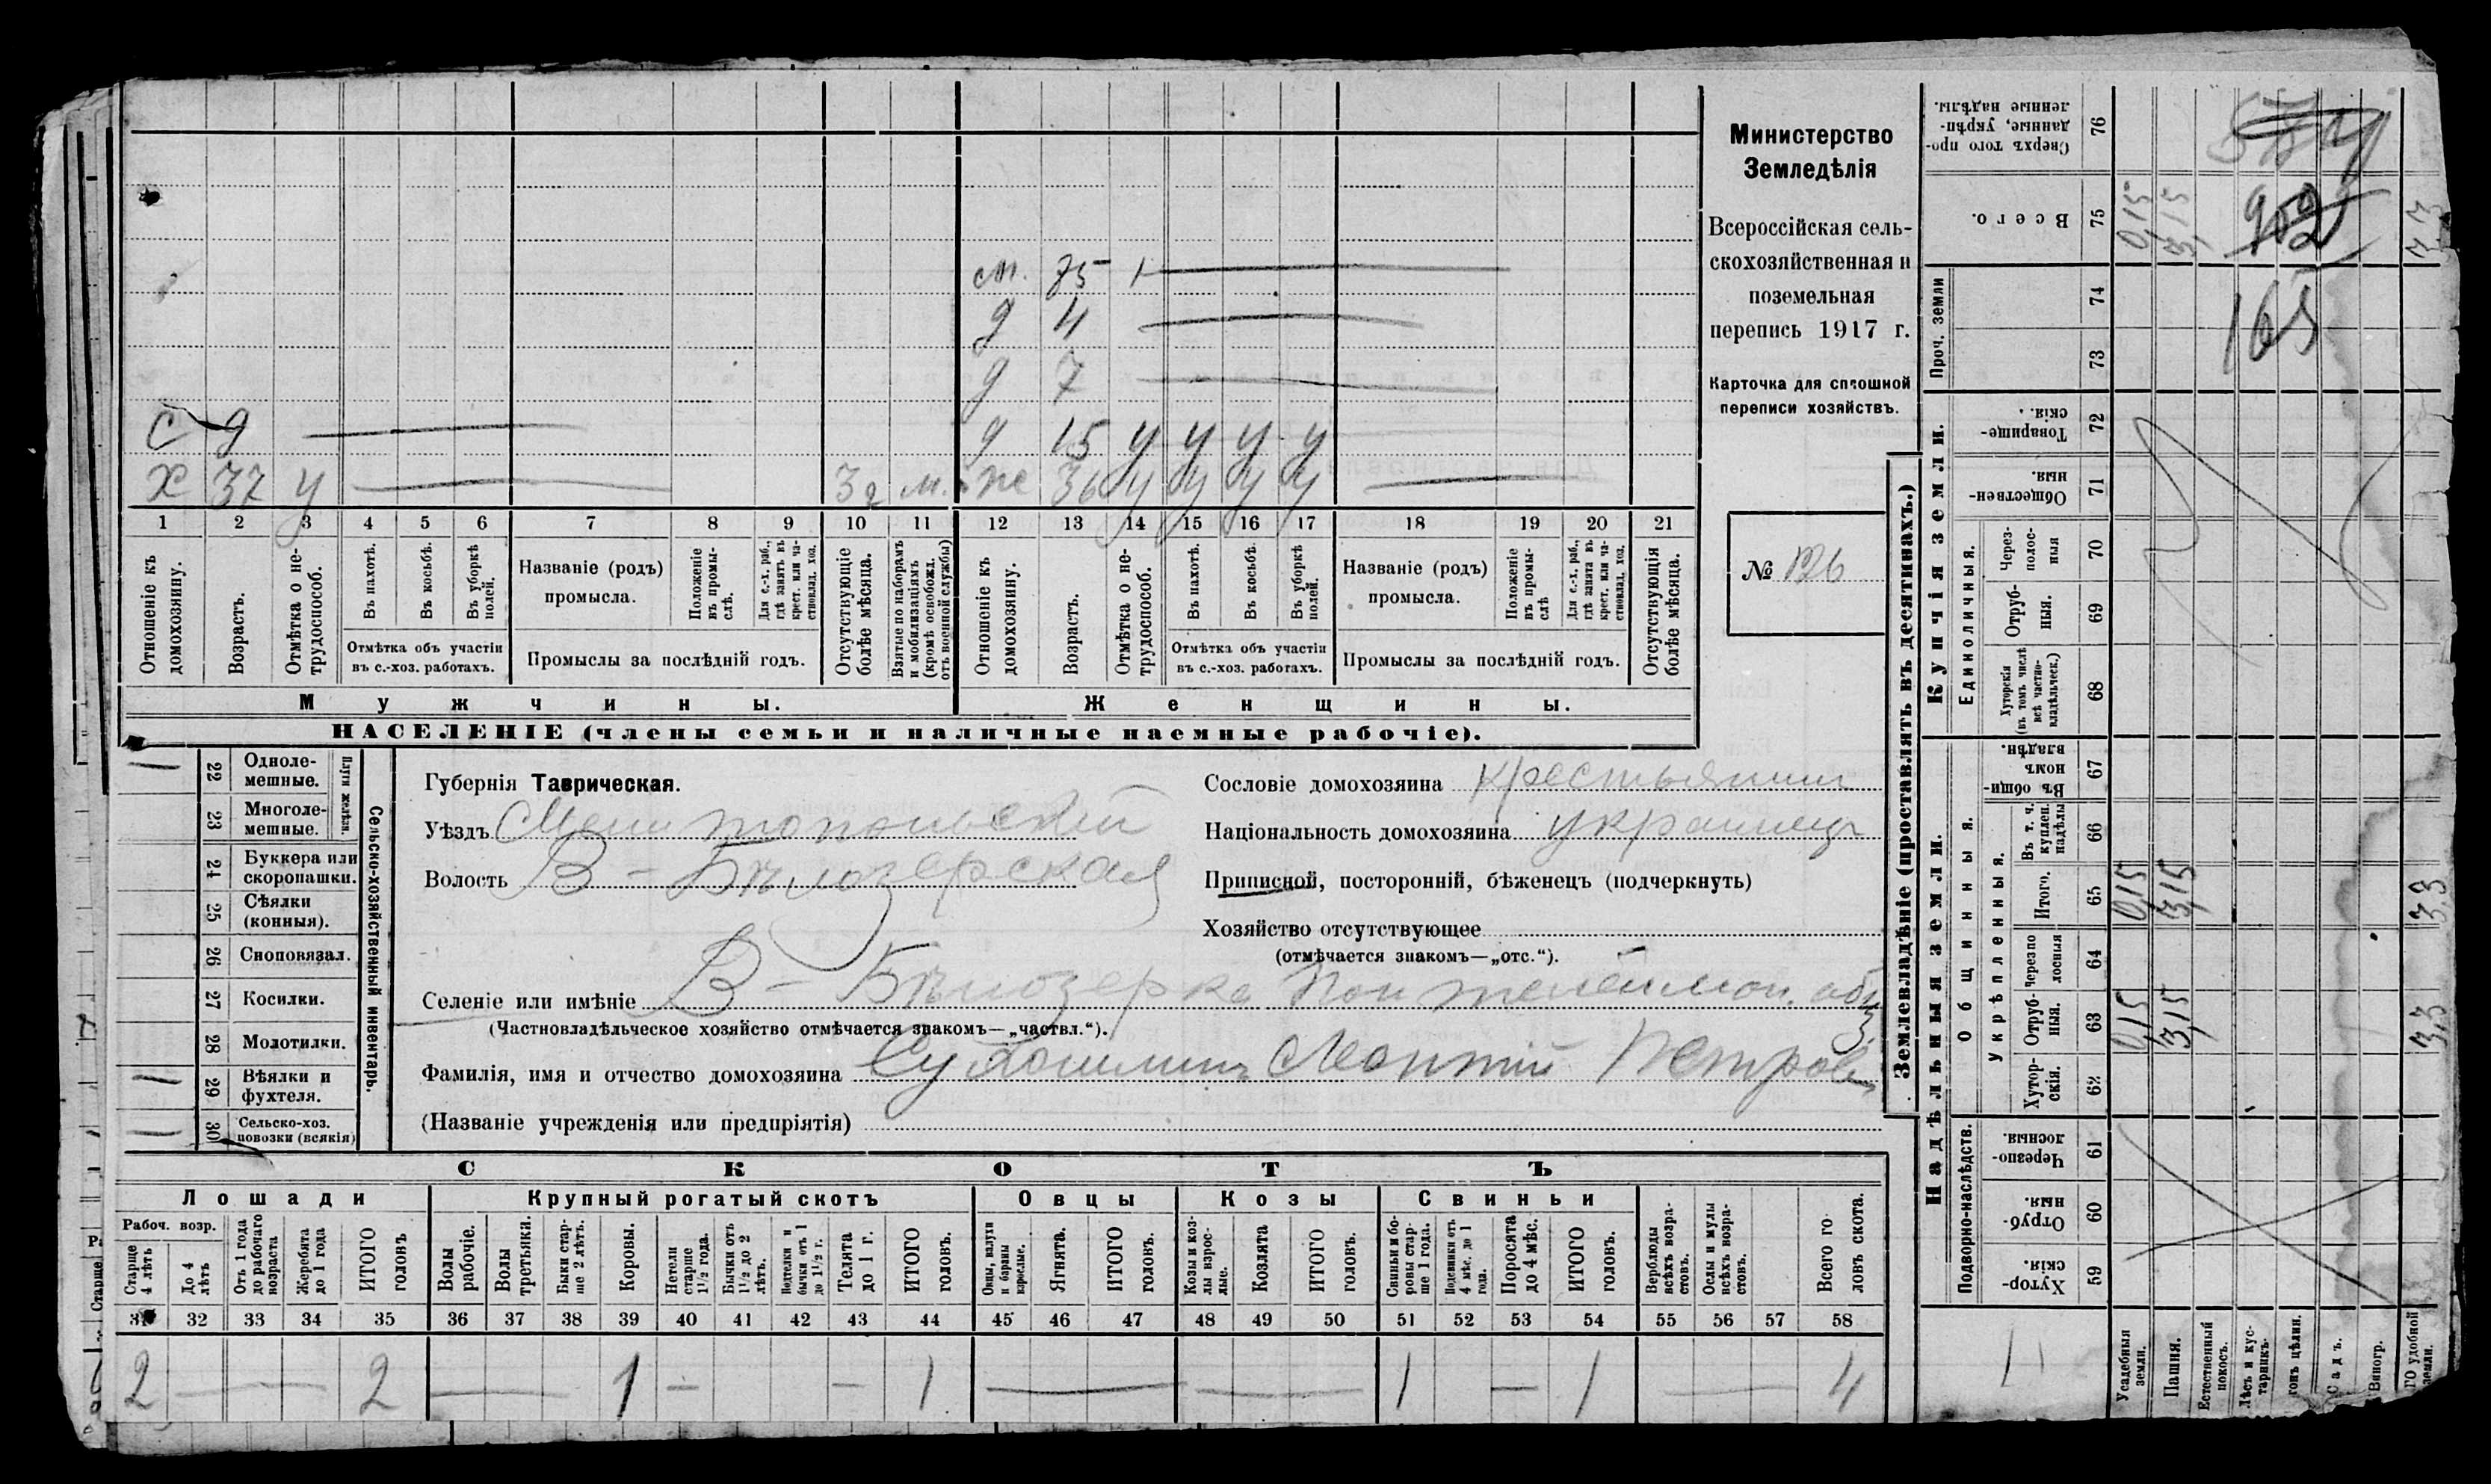 Министерство
Земледѣлія
Всероссійская сель-
скохозяйственная и
поземельная
перепись 1917 г.
Карточка для сплошной
переписи хозяйствъ.
№ 126
м. 75 1
д 4
д 7
с 9 д 15 у у у у
х 37 у 32 м. ж 36 у у у у
1 2 3 4 5 6 7 8 9 10 11 12 13 14 15 16 17 18 19 20 21
Отношеніе къ домохозяину.
Возрастъ.
Отмѣтка о не-трудоспособ.
Въ пахотѣ.
Въ косьбѣ.
Въ уборкѣ полей.
Отмѣтка объ участіи въ с.-хоз. работахъ.
Названіе (родъ) промысла.
Положеніе въ промы-слѣ.
Для с.-х. раб., гдѣ занятъ въ крест. или ча-ствовлад. хоз.
Промыслы за послѣдній годъ.
Отсутствующіе болѣе мѣсяца.
Взятые по наборамъ и мобилизаціямъ (кромѣ освобожд. отъ военной службы)
Отношеніе къ домохозяину.
Возрастъ.
Отмѣтка о не-трудоспособ.
Въ пахотѣ.
Въ косьбѣ.
Въ уборкѣ полей.
Отмѣтка объ участіи въ с.-хоз. работахъ.
Названіе (родъ) промысла.
Положеніе въ промы-слѣ
Для с.-х. раб., гдѣ занята въ крест. или ча-ствовлад. хоз.
Промыслы за послѣдній годъ.
Отсутствующія болѣе мѣсяца.
Мужчины. Женщины.
НАСЕЛЕНІЕ (члены семьи и наличные наемные рабочіе).
Сельско-хозяйственный инвентарь.
Плуги желѣзн.
22 Одноле-мешные.
23 Многоле-мешные.
24 Буккера или скоропашки.
25 Сѣялки (конныя).
26 Сноповязал.
27 Косилки.
28 Молотилки.
29 Вѣялки и фухтеля.
30 Сельско-хоз. повозки (всякія)
Губернія Таврическая.
Уѣздъ Мелитопольскій
Волость В-Бѣлозерская
Селеніе или имѣніе В-Бѣлозерка Пантелеймон. общ
(Частновладѣльческое хозяйство отмѣчается знакомъ—„частвл.“).
Фамилія, имя и отчество домохозяина Леонтій Петров
(Названіе учрежденія или предпріятія)
Сословіе домохозяина крестьянин
Національность домохозяина украинецъ
Приписной, посторонній, бѣженецъ (подчеркнуть)
Хозяйство отсутствующее
(отмѣчается знакомъ—„отс.“).
СКОТЪ
Лошади Крупный рогатый скотъ Овцы Козы Свиньи
Рабоч. возр.
Старше 4 лѣтъ
До 4 лѣтъ
Отъ 1 года до рабочаго возраста
Жеребята до 1 года
ИТОГО головъ
Волы рабочіе.
Волы третьяки.
Быки стар-ше 2 лѣтъ.
Коровы.
Нетели старше 1½ года.
Бычки отъ 1½ до 2 лѣтъ.
Подтелки и бычки отъ 1 до 1½ г.
Телята до 1 г.
ИТОГО головъ.
Овцы, валухи и бараны взрослые.
Ягнята.
ИТОГО головъ.
Козы и коз-лы взрос-лые.
Козлята
ИТОГО головъ.
Свиньи и бо-ровы стар-ше 1 года.
Подсвинки отъ 4 мѣс. до 1 года.
Поросята до 4 мѣс.
ИТОГО головъ.
Верблюды всѣхъ возра-стовъ.
Ослы и мулы всѣхъ возра-стовъ.
Всего го-ловъ скота.
31 32 33 34 35 36 37 38 39 40 41 42 43 44 45 46 47 48 49 50 51 52 53 54 55 56 57 58
2 — 2 — 1 — — 1 — — 1 — 1 — 4
Землевладѣніе (проставлять въ десятинахъ.)
Надѣльныя земли. Купчія земли. Проч. земли
Подворно-наслѣдств.
Общинныя.
Укрѣпленныя.
Единоличныя.
59 Хутор-скія.
60 Отруб-ныя.
61 Черезпо-лосныя.
62 Хутор-скія.
63 Отруб-ныя. 0,15 3,15 3,3
64 Черезпо-лосныя
65 Итого. 0,15 3,15 3,3
66 Въ т. ч. куплен. надѣлы
67 Въ общи-номъ владѣн.
68 Хуторскія (въ томъ числѣ всѣ частно-владѣльческ.)
69 Отруб-ныя.
70 Через-полос-ныя
71 Обществен-ныя.
72 Товарище-скія.
73
74
165
75 Всего. 0,15 3,15 3,3
952
76 Сверхъ того про-данные, укрѣп-ленные надѣлы.
Усадебныя земли.
Пашня.
Естественный покосъ.
Лѣсъ и кус-тарникъ.
Садъ.
Виногр.
ГО удобной земли.